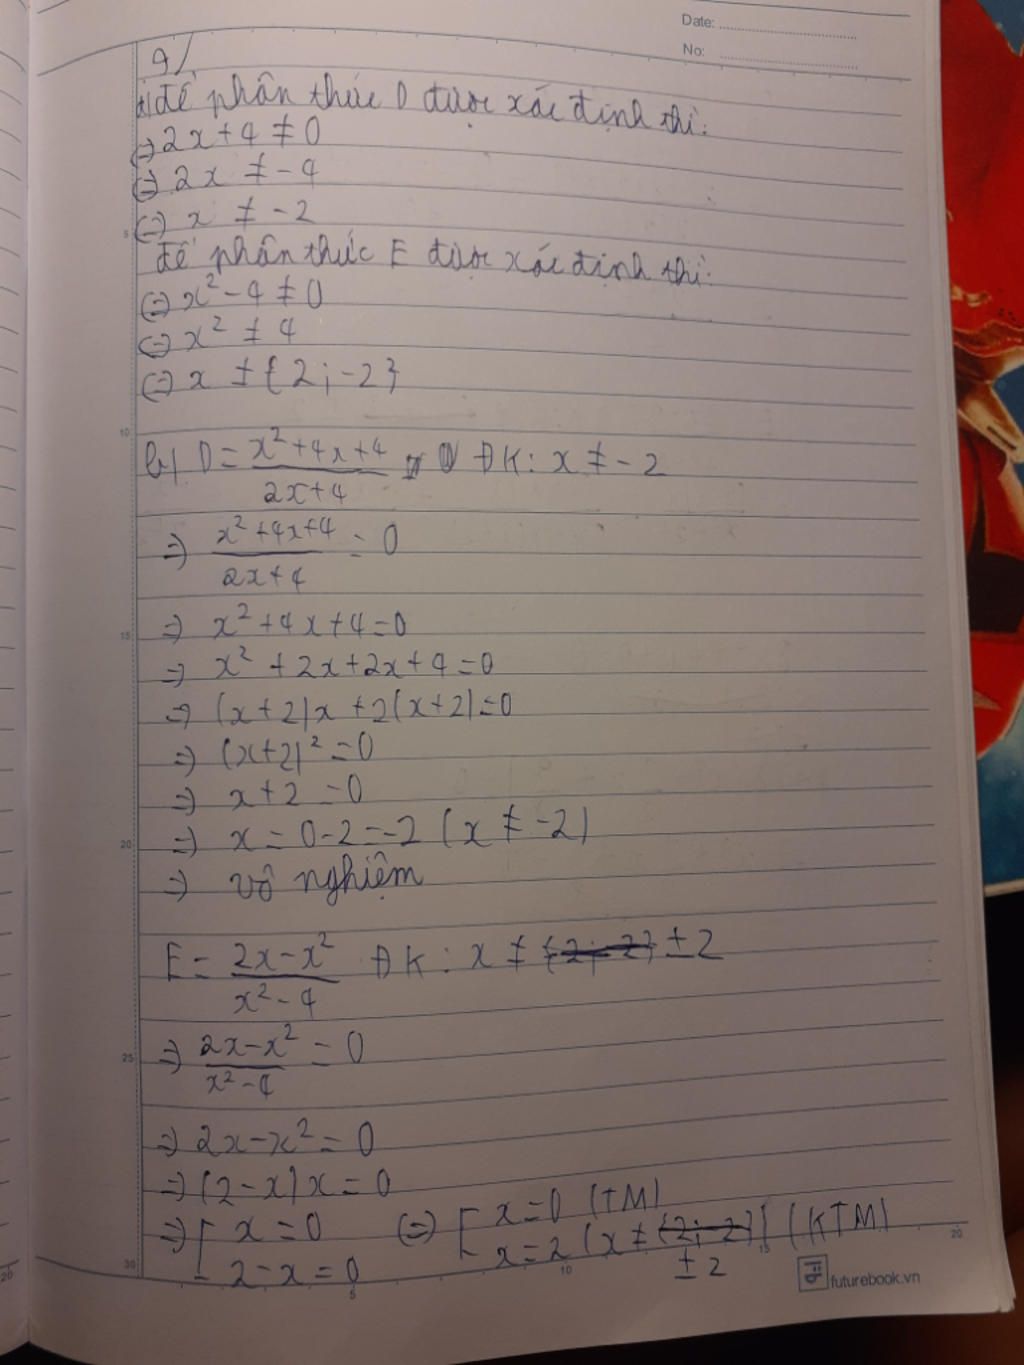 Date:
No:
9/
a/ để phân thức D được xác định thì:
(=) 2x+4 ≠ 0
(=) 2x ≠ -4
(=) x ≠ -2
để phân thức E được xác định thì:
(=) x² - 4 ≠ 0
(=) x² ≠ 4
(=) x ≠ {2; -2}
b/ D = (x²+4x+4)/(2x+4) ĐK: x ≠ -2
=) (x²+4x+4)/(2x+4) = 0
=) x²+4x+4=0
=) x²+2x+2x+4=0
=) (x+2)x+2(x+2)=0
=) (x+2)²=0
=) x+2=0
=) x=0-2=-2 (x ≠ -2)
=) vô nghiệm
E = (2x-x²)/(x²-4) ĐK: x ≠ {2; -2} ±2
=) (2x-x²)/(x²-4) = 0
=) 2x-x²=0
=) (2-x)x=0
=) [ x=0 (=) [ x=0 (TM)
2-x=0 x=2 (x ≠ {2; -2}) (KTM)
±2
futurebook.vn
5
10
15
20
25
30
5
10
15
20
20